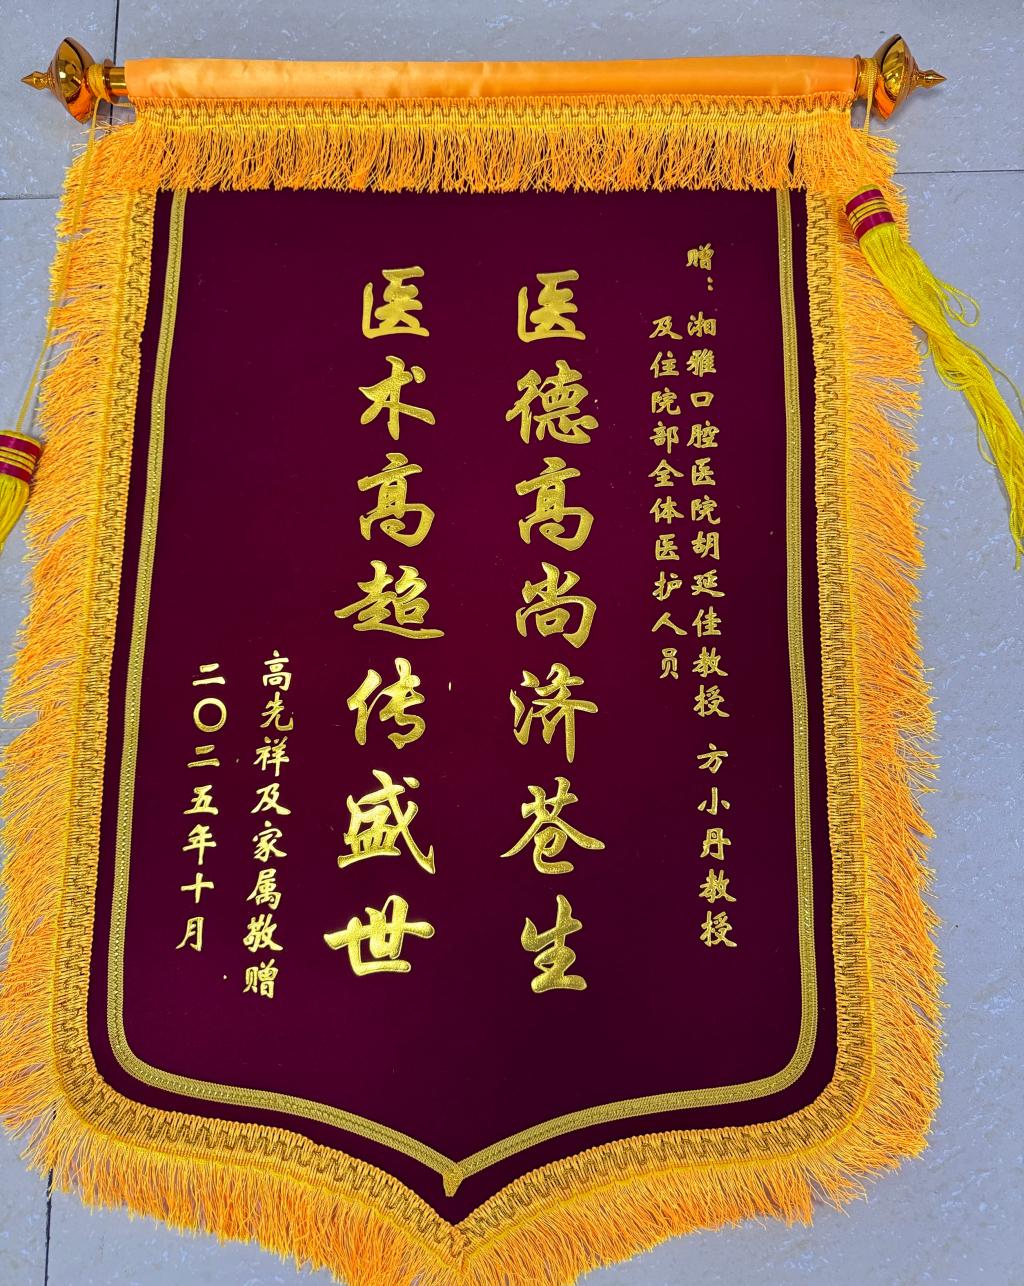 赠：湘雅口腔医院胡延佳教授 方小丹教授
及住院部全体医护人员
医德高尚济苍生
医术高超传盛世
高先祥及家属敬赠
二〇二五年十月